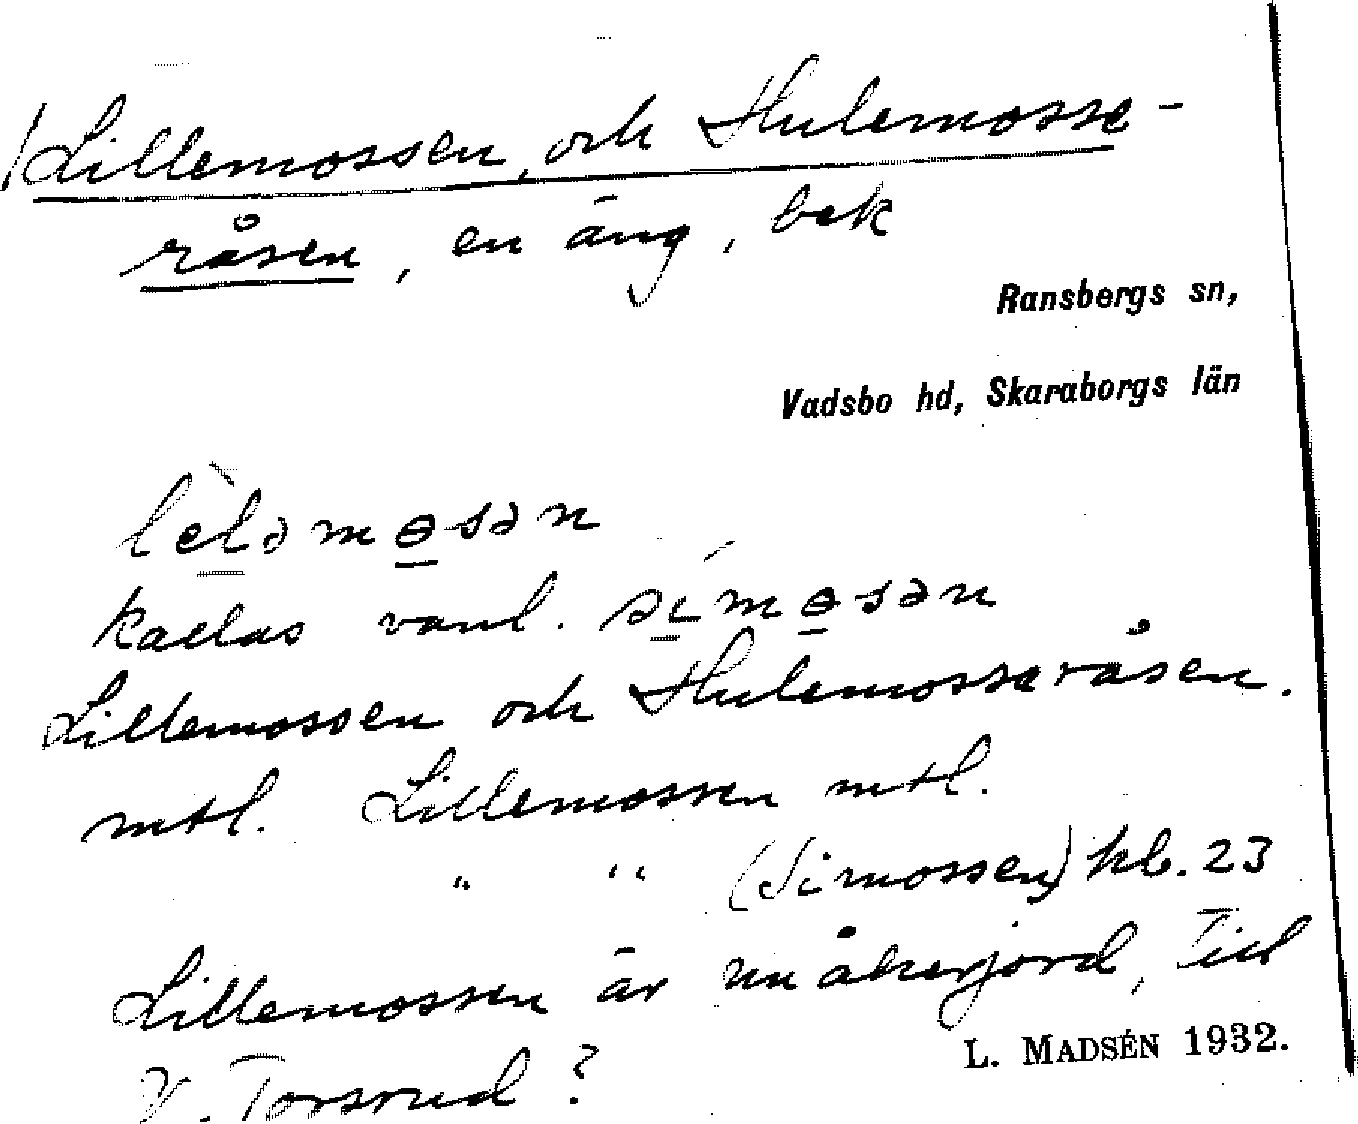 Lillemossen, och Hulemosse-
råsen, en äng, bek
Ransbergs sn,
Vadsbo hd, Skaraborgs län
lèləmɵsən
kallas vanl. símɵsən
Lillemossen och Hulemosseråsen.
mtl. Lillemossen mtl.
" " (Simossen) kb. 23
Lillemossen är nu åkerjord, Till
V. Torsrud?
L. MADSÉN 1932.